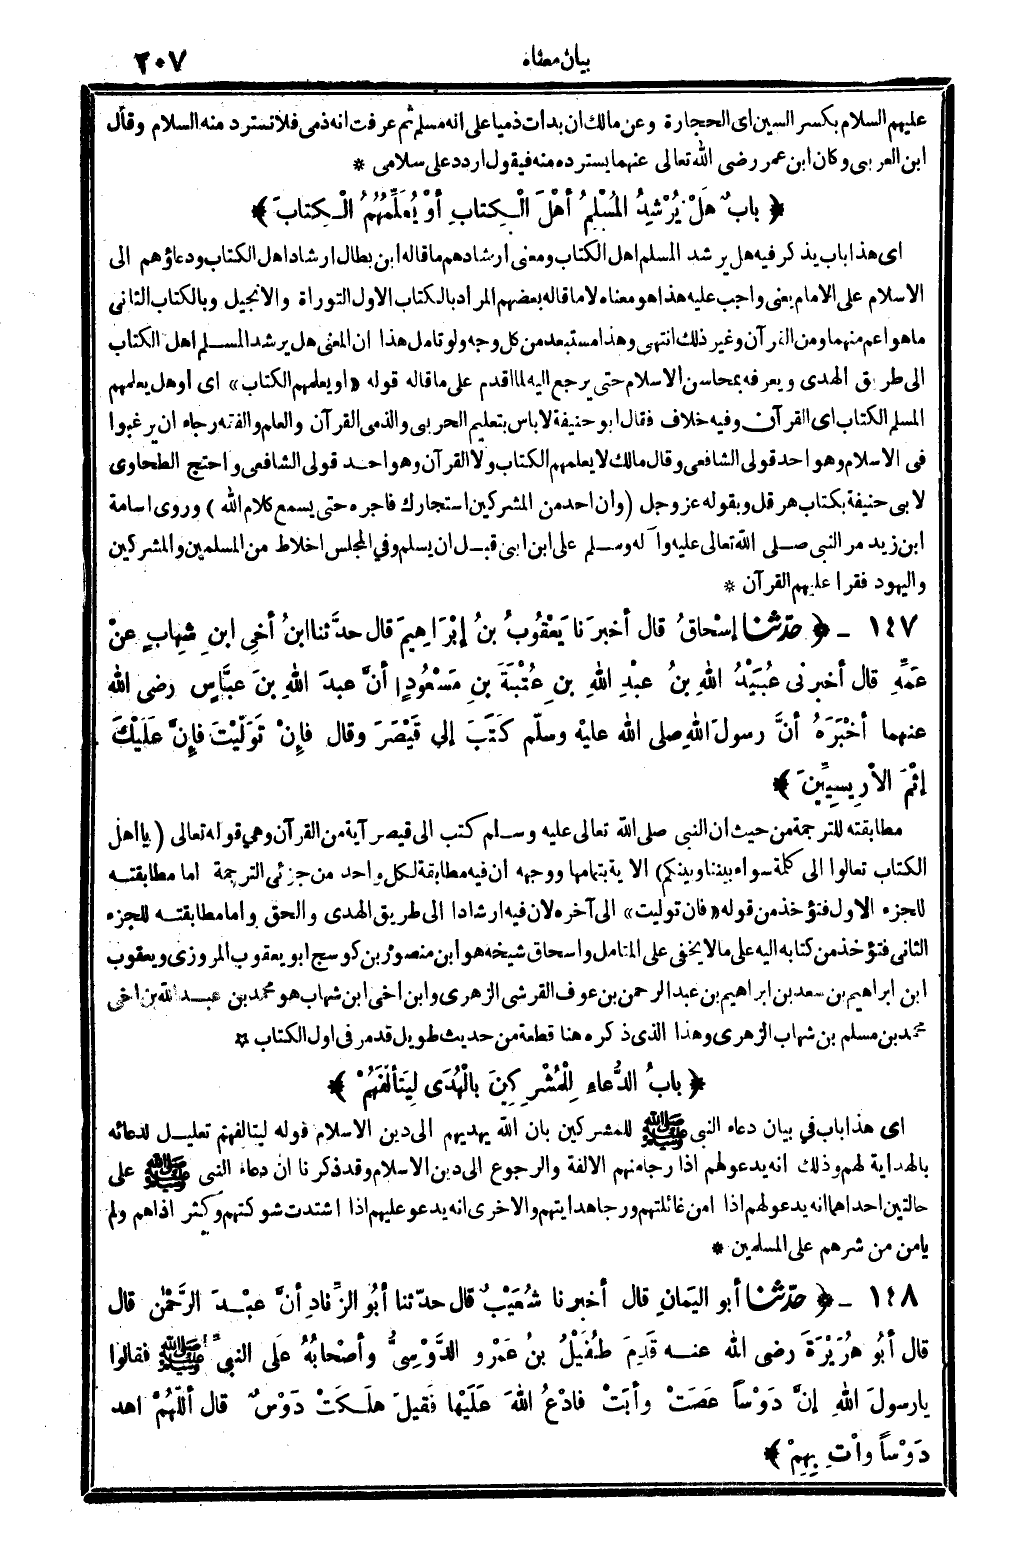 بيان معناه ٢٠٧
عليهم السلام بكسر السين اى الحجارة وعن مالك ان بدات ذميا على انه مسلم ثم عرفت انه ذمى فلا تسترد منه السلام وقال
ابن العربى وكان ابن عمر رضى الله تعالى عنهما يسترده منه فيقول اردد على سلامى *
﴿ بابٌ هَلْ يُرْشِدُ المُسْلِمُ أهْلَ الْكِتابِ أوْ يُعَلِّمُهُمُ الْكِتابَ ﴾
اى هذا باب يذكر فيه هل يرشد المسلم اهل الكتاب ومعنى ارشادهم ما قاله ابن بطال ارشاد اهل الكتاب ودعاؤهم الى
الاسلام على الامام يعنى واجب عليه هذا هو معناه لا ما قاله بعضهم المراد بالكتاب الاول التوراة والانجيل وبالكتاب الثانى
ما هو اعم منهما ومن القرآن وغير ذلك انتهى وهذا مستبعد من كل وجه ولو تامل هذا ان المعنى هل يرشد المسلم اهل الكتاب
الى طريق الهدى ويعرفه بمحاسن الاسلام حتى يرجع اليه لما اقدم على ما قاله قوله «او يعلمهم الكتاب» اى او هل يعلمهم
المسلم الكتاب اى القرآن وفيه خلاف فقال ابو حنيفة لا باس بتعليم الحربى والذمى القرآن والعلم والفقه رجاء ان يرغبوا
فى الاسلام وهو احد قولى الشافعى وقال مالك لا يعلمهم الكتاب ولا القرآن وهو احد قولى الشافعى واحتج الطحاوى
لابى حنيفة بكتاب هرقل وبقوله عز وجل (وان احد من المشركين استجارك فاجره حتى يسمع كلام الله) وروى اسامة
ابن زيد مر النبى صلى الله تعالى عليه وآله وسلم على ابن ابى قبل ان يسلم وفي المجلس اخلاط من المسلمين والمشركين
واليهود فقرا عليهم القرآن *
١٤٧ ـ ﴿ حدّثنا إسْحاقُ قال أخبرَنا يَعْقُوبُ بنُ إبْرَاهِيمَ قال حدَّثنا ابنُ أخِي ابنِ شِهابٍ عنْ
عَمِّهِ قال أخبرنى عُبَيْدُ اللهِ بنُ عبْدِ اللهِ بنِ عُتْبَةَ بنِ مَسْعُودٍ أنَّ عبدَ اللهِ بنَ عبَّاسٍ رضى الله
عنهما أخْبَرَهُ أنَّ رسولَ اللهِ صلى الله عليْه وسلّم كَتَبَ إلى قَيْصَرَ وقال فإنْ تَوَلَّيْتَ فإنَّ عَلَيْكَ
إثْمَ الأرِيسِيِّينَ ﴾
مطابقته للترجمة من حيث ان النبى صلى الله تعالى عليه وسلم كتب الى قيصر آية من القرآن وهي قوله تعالى (يا اهل
الكتاب تعالوا الى كلمة سواء بيننا وبينكم) الاية بتمامها ووجهه ان فيه مطابقة لكل واحد من جزئى الترجمة اما مطابقته
للجزء الاول فتؤخذ من قوله «فان توليت» الى آخره لان فيه ارشادا الى طريق الهدى والحق واما مطابقته للجزء
الثانى فتؤخذ من كتابه اليه على ما لا يخفى على المتامل واسحاق شيخه هو ابن منصور بن كوسج ابو يعقوب المروزى ويعقوب
ابن ابراهيم بن سعد بن ابراهيم بن عبد الرحمن بن عوف القرشى الزهرى وابن اخى ابن شهاب هو محمد بن عبد الله بن اخى
محمد بن مسلم بن شهاب الزهرى وهذا الذى ذكره هنا قطعة من حديث طويل قد مر فى اول الكتاب *
﴿ بابُ الدُّعاءِ لِلْمُشْرِكِينَ بالْهُدَى لِيَتَألَّفَهُمْ ﴾
اى هذا باب في بيان دعاء النبى ﷺ للمشركين بان الله يهديهم الى دين الاسلام قوله ليتالفهم تعليل لدعائه
بالهداية لهم وذلك انه يدعو لهم اذا رجا منهم الالفة والرجوع الى دين الاسلام وقد ذكرنا ان دعاء النبى ﷺ على
حالتين احداهما انه يدعو لهم اذا امن غائلتهم ورجا هدايتهم والاخرى انه يدعو عليهم اذا اشتدت شوكتهم وكثر اذاهم ولم
يامن من شرهم على المسلمين *
١٤٨ ـ ﴿ حدّثنا أبو اليَمانِ قال أخبرنا شُعَيْبٌ قال حدّثنا أبُو الزِّنادِ أنَّ عبْدَ الرَّحْمٰنِ قال
قال أبُو هُرَيْرَةَ رضى الله عنه قَدِمَ طُفَيْلُ بنُ عَمْرٍو الدَّوْسِىُّ وأصْحابُهُ علَى النبىِّ ﷺ فقالوا
يا رسولَ اللهِ إنَّ دَوْساً عَصَتْ وأبَتْ فادْعُ اللهَ عَلَيْها فَقِيلَ هلَكَتْ دَوْسٌ قال أللّهُمَّ اهد
دَوْساً وأْتِ بِهِمْ ﴾